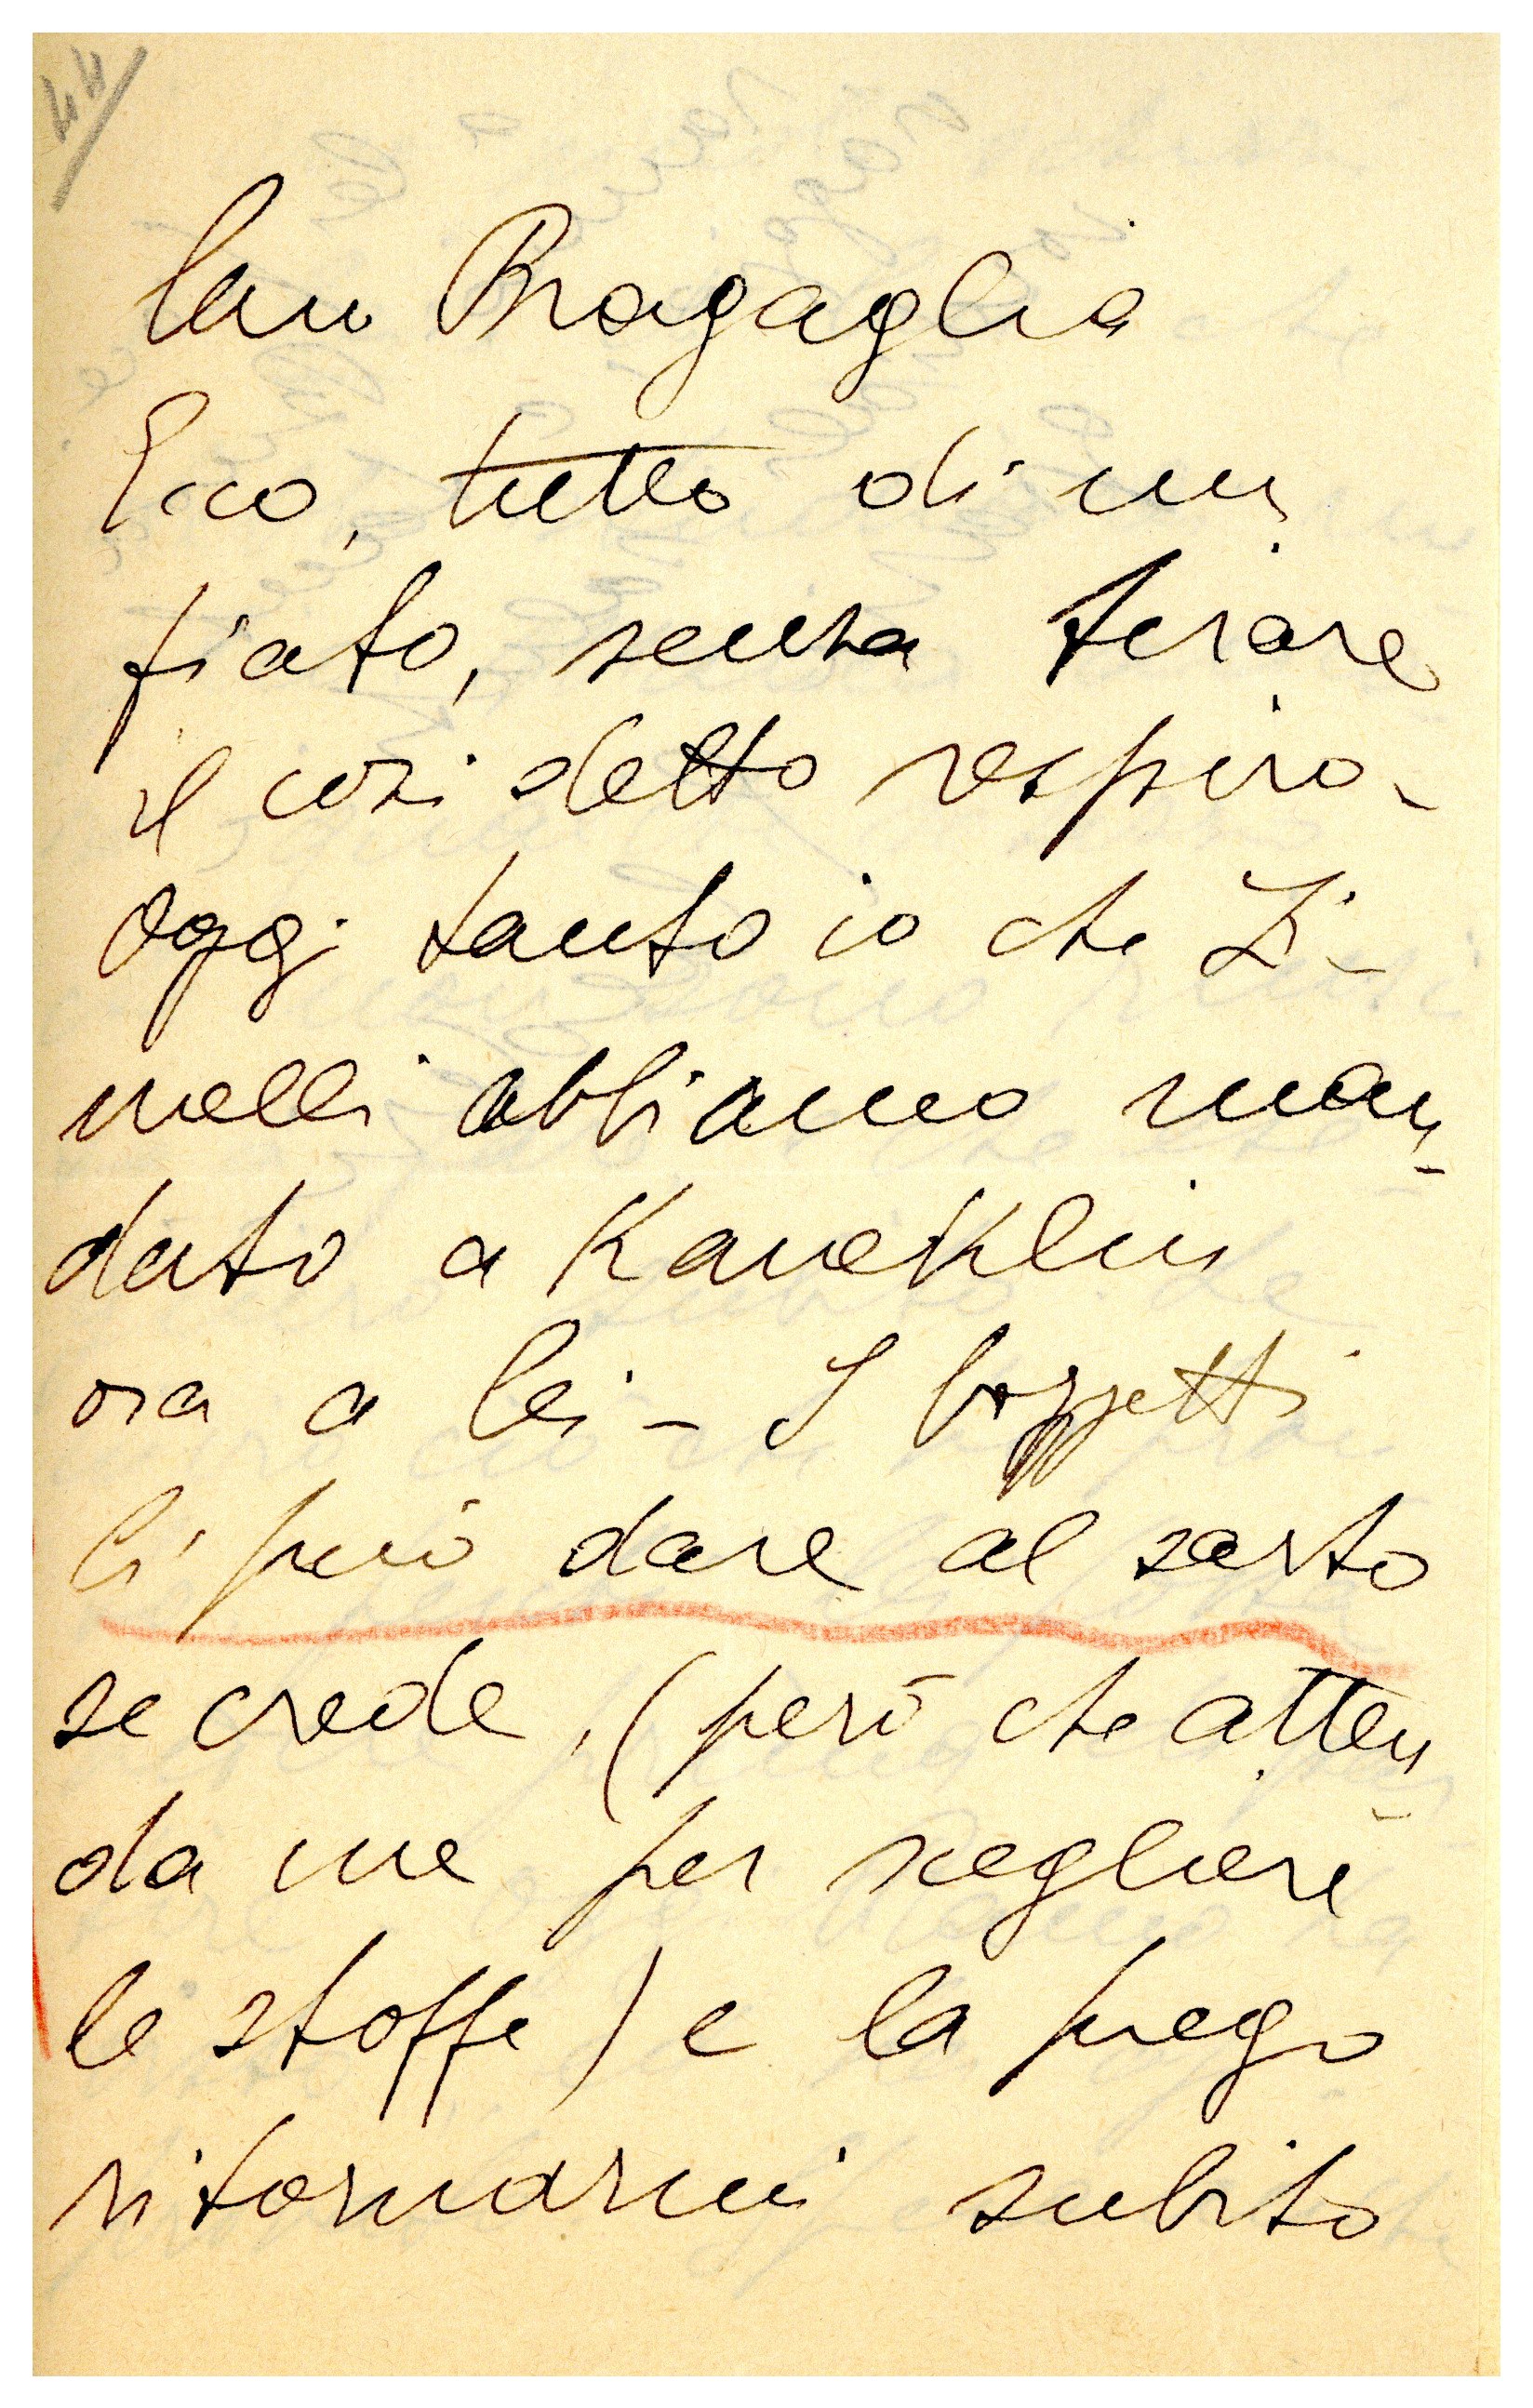 44
Caro Bragaglia
Ecco, tutto di un
fiato, senza tirare
il così detto respiro -
Oggi tanto io che Zi-
melli abbiamo man-
dato a Kaneklin
ora a lei - I bozzetti
li può dare al sarto
se crede, (però che atten-
da me per scegliere
le stoffe) e la prego
ritornarmi subito